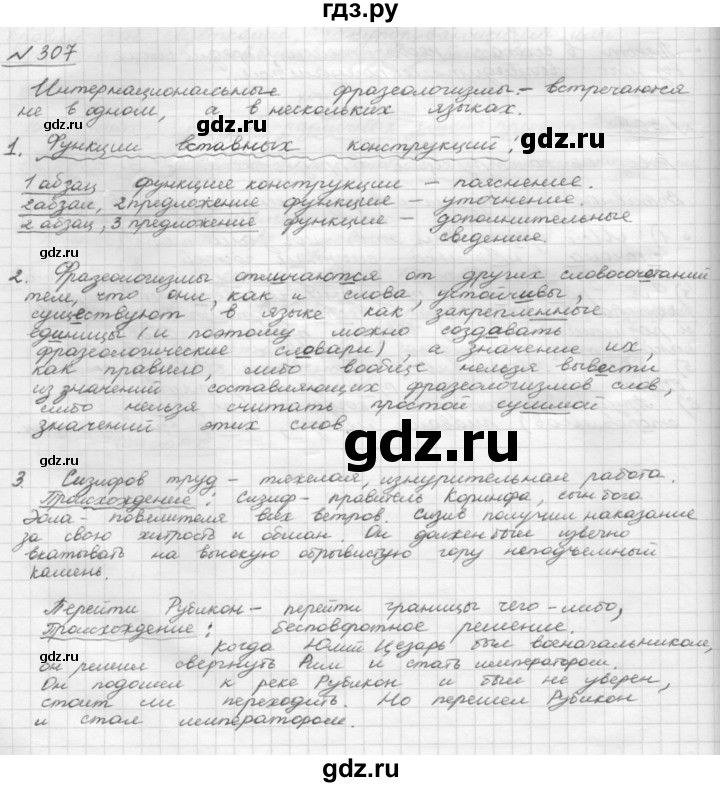 гдз.ру
№ 307
Интернациональные фразеологизмы – встречаются
не в одном, а в нескольких языках.
gdz.ru gdz.ru
1. Функции вставных конструкций:
gdz.ru
1 абзац функция конструкции – пояснение.
2 абзац, 2 предложение функция – уточнение.
2 абзац, 3 предложение функция – дополнительные
сведение.
gdz.ru
2. Фразеологизмы отличаются от других словосочетаний
тем, что они, как и слова, устойчивы,
существуют в языке как закрепленные
gdz.ru
единицы (и поэтому можно создавать
фразеологические словари), а значение их,
как правило, либо вообще нельзя вывести
gdz.ru
из значений составляющих фразеологизмов слов,
либо нельзя считать простой суммой
значений этих слов.
gdz.ru
gdz.ru
3. Сизифов труд – тяжелая, изнурительная работа.
Происхождение: Сизиф – правитель Коринфа, сын бога
Эола – повелителя всех ветров. Сизив получил наказание
gdz.ru
за свою хитрость и обман. Он должен был извечно
вкатывать на высокую обрывистую гору неподъемный
камень.
gdz.ru
Перейти Рубикон – перейти границы чего-либо,
Происхождение: бесповоротное решение.
gdz.ru
Когда Юлий Цезарь был военачальником,
он решил свергнуть Рим и стать императором.
gdz.ru
Он подошел к реке Рубикон и был не уверен,
стоит ли переходить. Но перешел Рубикон
и стал императором.
gdz.ru
gdz.ru
gdz.ru